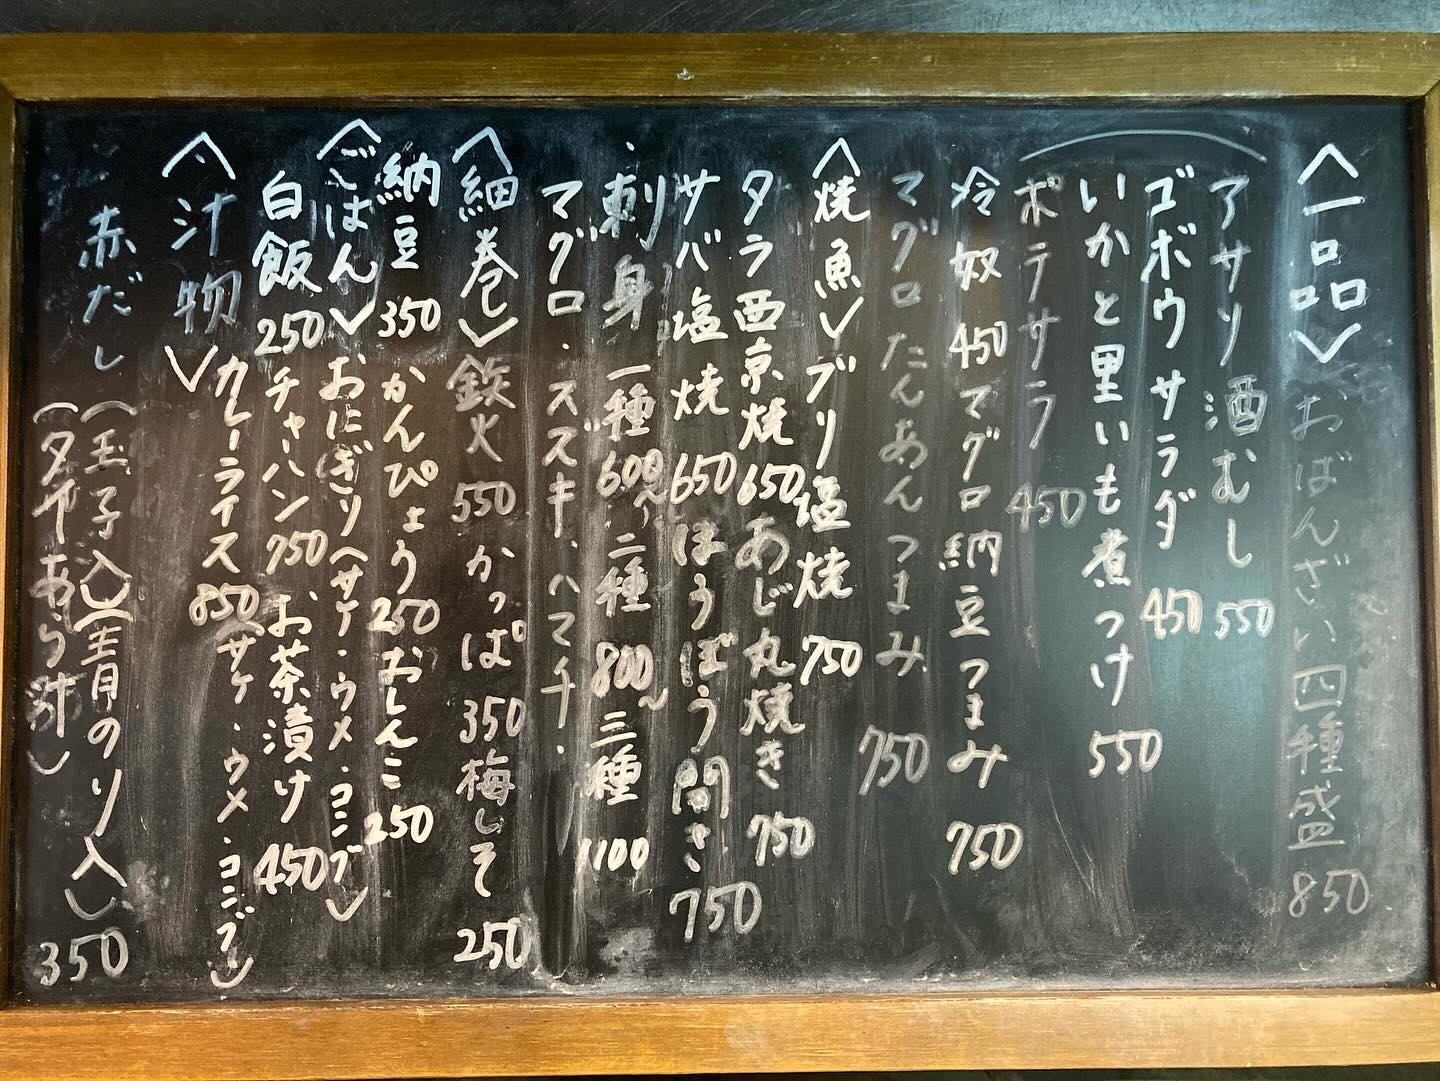 〈一品〉おばんざい四種盛 850
アサリ酒むし 550
ゴボウサラダ 450
いかと里いも煮つけ 550
ポテサラ 450
冷奴 450 マグロ納豆つまみ 750
マグロたんあんつまみ 750
〈焼魚〉ブリ塩焼 750
タラ西京焼 650 あじ丸焼き 750
サバ塩焼 650 ほうぼう開き 750
刺身 一種 600〜 二種 800〜 三種 1100
マグロ・スズキ・ハマチ・
〈細巻〉鉄火 550 かっぱ 350 梅しそ 250
納豆 350 かんぴょう 250 おしんこ 250
〈ごはん〉おにぎり(サケ・ウメ・コンブ)
白飯 250 チャーハン 750 お茶漬け 450
カレーライス 850 (サケ・ウメ・コンブ)
〈汁物〉
赤だし (玉子入)(青のり入)
(タイあら汁) 350